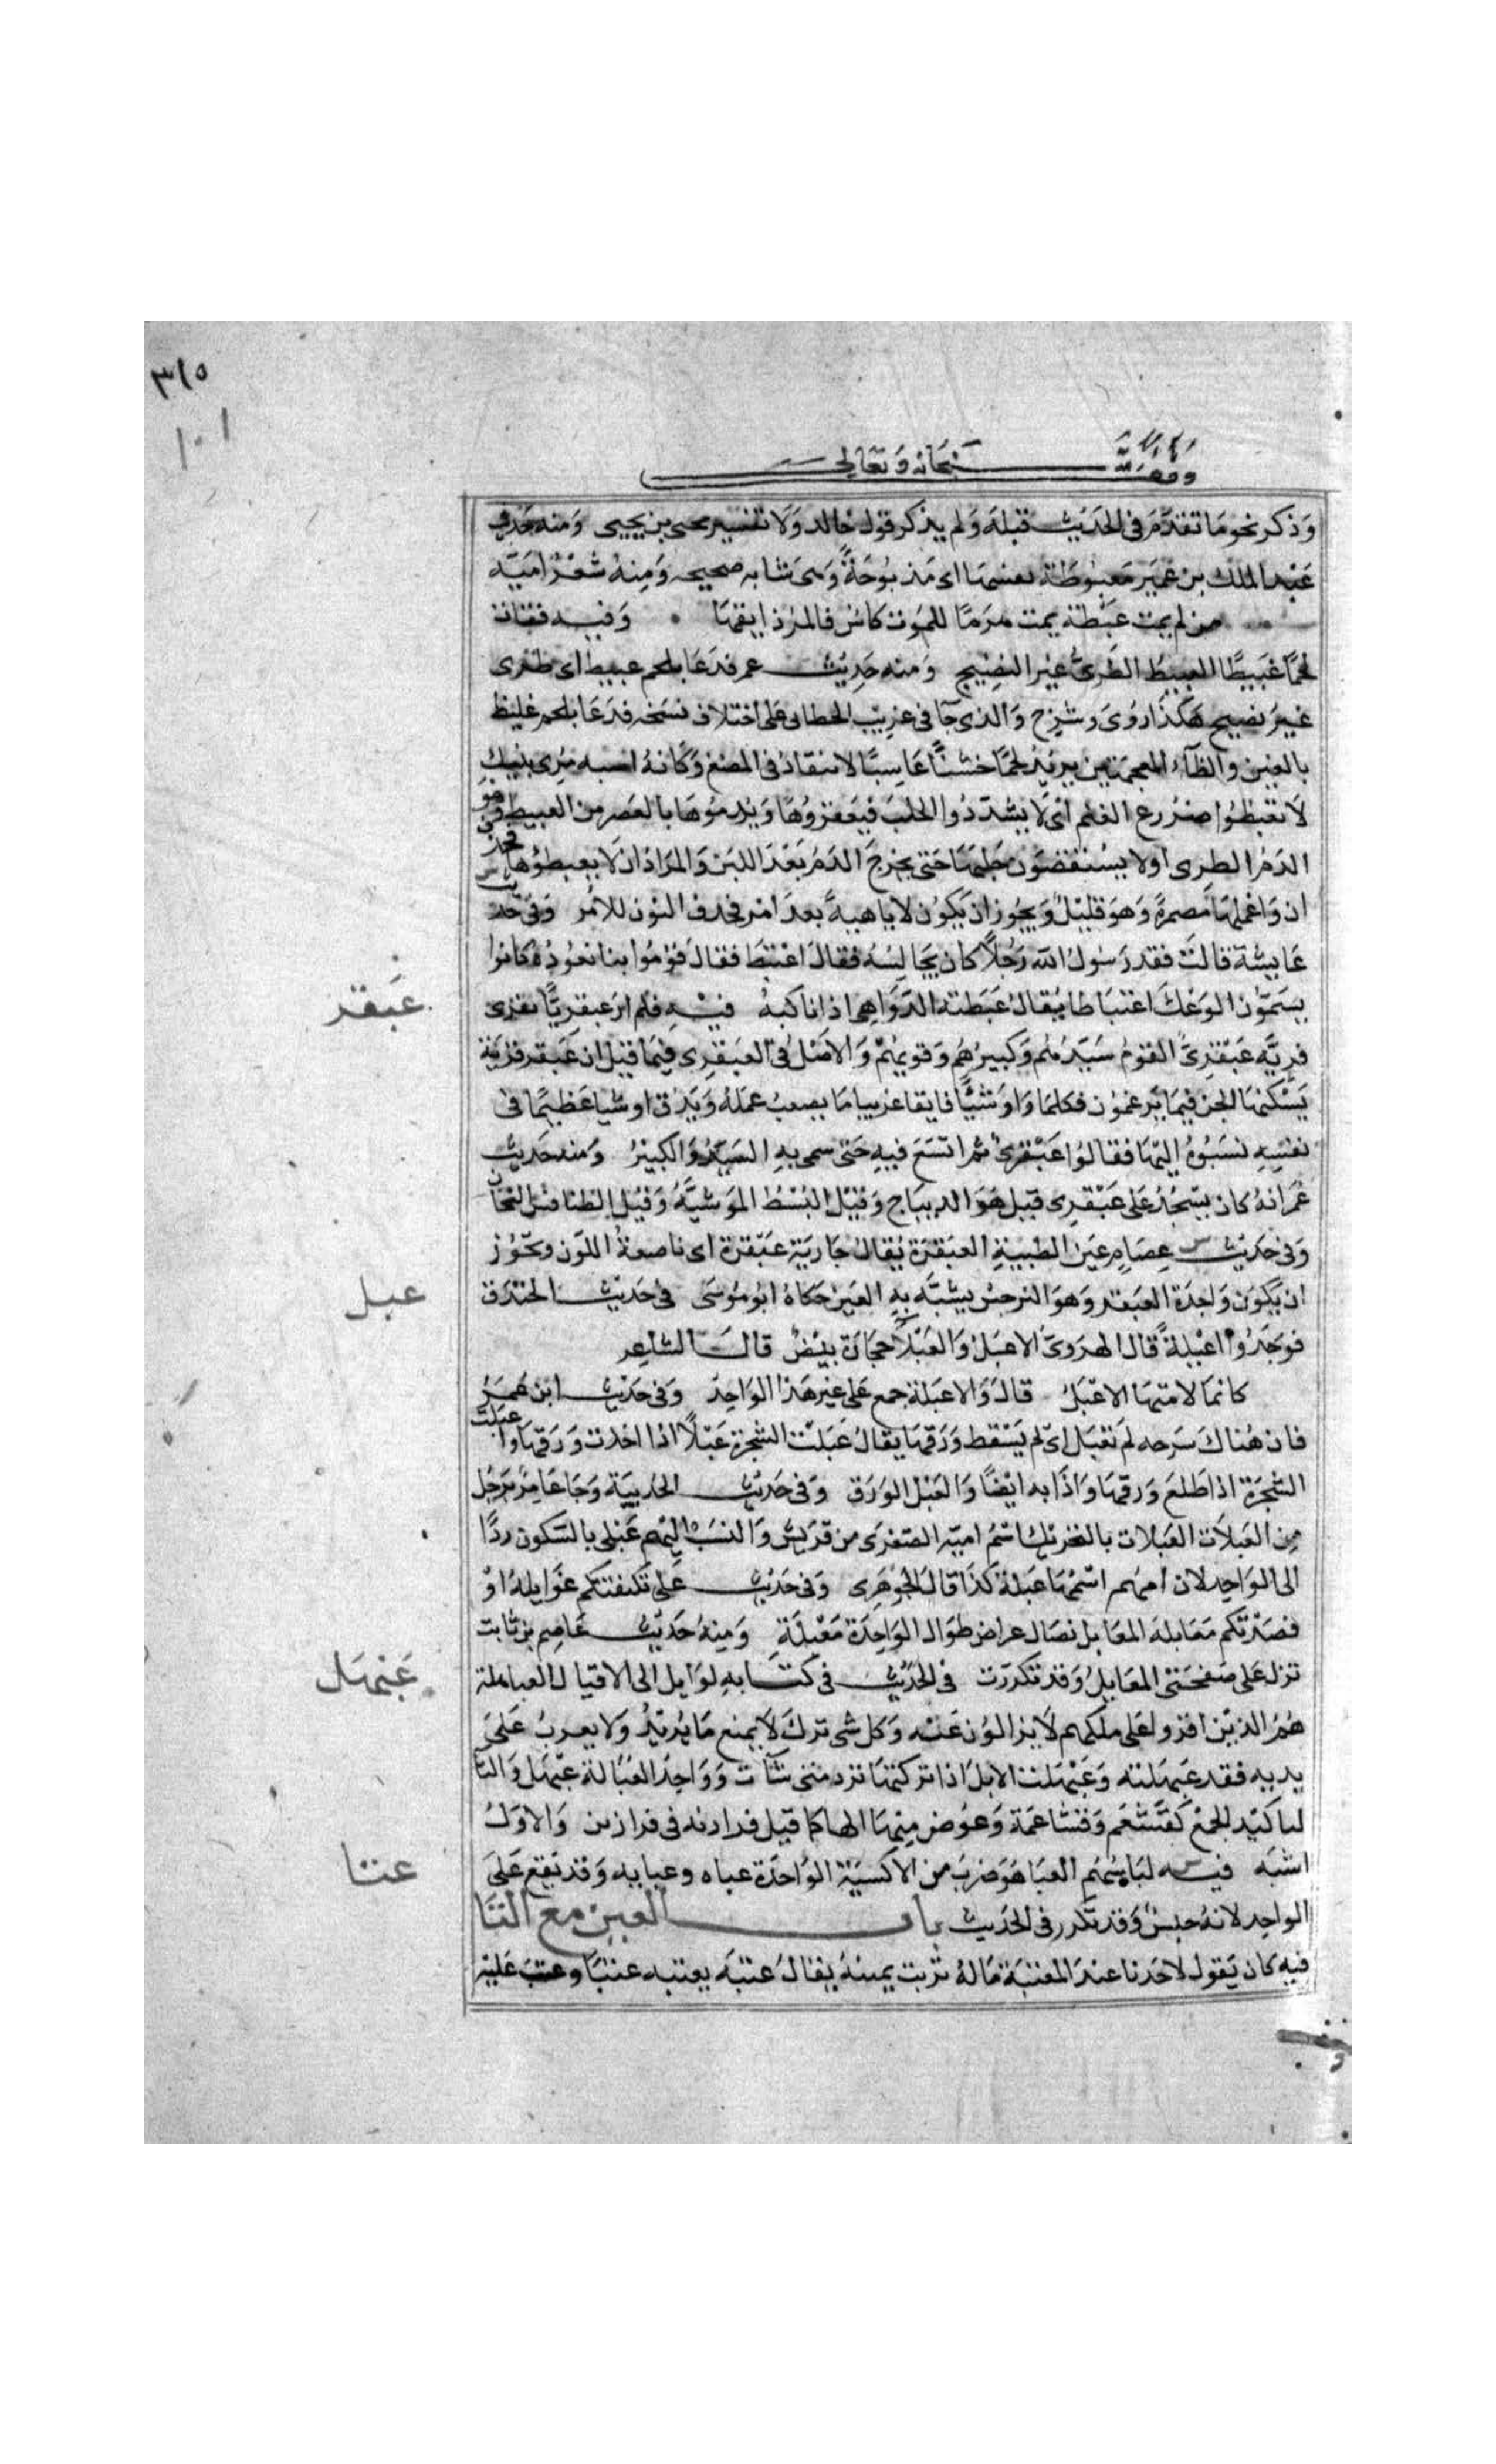 ٣١٥
١٠١
وقف لله سبحانه وتعالى
وذكر نحو ما تقدم فى الحديث قبله ولم يذكر قول خالد ولا تفسير يحيى بن يحيى ومنه حديث
عبد الملك بن عمير معبوطة نفسها اى مذبوحة وهى شابه صحيحه ومنه شعر امية
من لم يمت عبطة يمت هرما للموت كاس فالمرء ذايقها وفيه فقات
لحما عبيطا العبيط الطرى غير النضيج ومنه حديث عمر فدعا بلحم عبيط اى طرى
غير نضيج هكذا روى وشرح والذى جا فى غريب الخطابى على اختلاف نسخه فدعا بلحم غليظ
بالغين والظاء المعجمتين يريد لحما خشنا عاسيا لا ينقاد فى المضغ وكانه اشبه مرى بنيك
لا تعبطوا ضروع الغنم اى لا يشددوا الحلب فيعقروها ويدموها بالعصر من العبيط وهو
الدم الطرى اولا يستقصون حلبها حتى يخرج الدم بعد اللبن والمراد ان لا يعبطوها فحذف
ان واعملها مضمرة وهو قليل ويجوز ان يكون لا ناهية بعد امر فحذف النون للامر وفى حديث
عايشة قالت فقد رسول الله رجلا كان يجالسه فقال اعتبط فقال قوموا بنا نعوده كانوا
يسمون الوعك اعتباطا يقال عبطته الدواهى اذا نالته فيه فلم ار عبقريا يفرى
عبقر
فريه عبقرى القوم سيدهم وكبيرهم وقويهم والاصل فى العبقرى فيما قيل ان عبقر قرية
يسكنها الجن فيما يزعمون فكلما راوا شيئا فايقا غريبا ما يصعب عمله ويدق او شيا عظيما فى
نفسه نسبوه اليها فقالوا عبقرى ثم اتسع فيه حتى سمى به السيد والكبير ومنه حديث
عمر انه كان يسجد على عبقرى قيل هو الديباج وقيل البسط الموشية وقيل الطنافس الثخان
وفى حديث عصام عين الظبية العبقرة يقال جارية عبقرة اى ناصعة اللون ويجوز
ان يكون واحدة العبقر وهو النرجس يشبه به العين حكاه ابو موسى فى حديث الخندق
عبل
فوجدوا اعبلة قال الهروى الاعبل والعبلا حجارة بيض قال الشاعر
كانما لامتها الاعبل قال والاعبلة جمع على غير هذا الواحد وفى حديث ابن عمر
فان هناك سرحه لم تعبل اى لم يسقط ورقها يقال عبلت الشجرة عبلا اذا اخذت ورقها واعبلت
الشجرة اذا طلع ورقها واذا به ايضا والعبل الورق وفى حديث الحديبية وجا عامر برجل
من العبلات العبلات بالتحريك اسم امية الصغرى من قريش والنسب اليهم عبلى بالسكون ردا
الى الواحد لان امهم اسمها عبلة كذا قال الجوهرى وفى حديث على تكنفتكم غوايله او
قصدتكم معابله المعابل نصال عراض طوال الواحدة معبلة ومنه حديث عاصم بن ثابت
تزل على صفحتى المعابل وقد تكررت فى الحديث فى كتابه لوايل الى الاقيال العباهلة
عبهل
هم الذين اقروا على ملكهم لا يزالون عنه وكل شى ترك لا يمنع ما يريد ولا يضرب على
يديه فقد عبهلته وعبهلت الابل اذا تركتها ترد متى شات وواحد العباهلة عبهل والتا
لتاكيد الجمع كقشعم وقشاعمة وعوض منها الها كما قيل فرازنه فى فرازين والاول
اشبه فيه لباسهم العبا هو ضرب من الاكسية الواحدة عباه وعبايه وقد يقع على
عتنا
الواحد لانه جنس وقد تكرر فى الحديث باب العين مع التا
فيه كان يقول لاحدنا عند المعتبة ماله تربت يمينه يقال عتبه يعتبه عتبا وعتب عليه